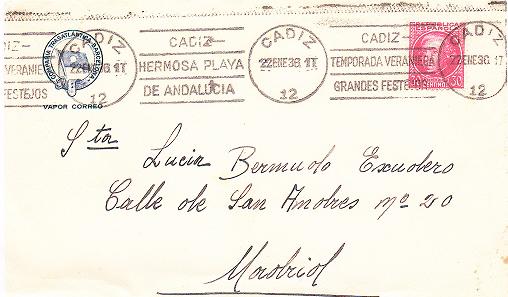 CADIZ
22ENE36.17
12
VERANIEGA
FESTEJOS
COMPAÑIA TRASATLANTICA BARCELONA
VAPOR CORREO
CADIZ—
HERMOSA PLAYA
DE ANDALUCIA
CADIZ
22ENE36.17
12
CADIZ—
TEMPORADA VERANIEGA
GRANDES FESTEJOS
REPUBLICA
ESPAÑOLA
30
CENTIMOS
CADIZ
22ENE36.17
12
Sta
Lucia Bermudo Escudero
Calle de San Andres nº 20
Madrid